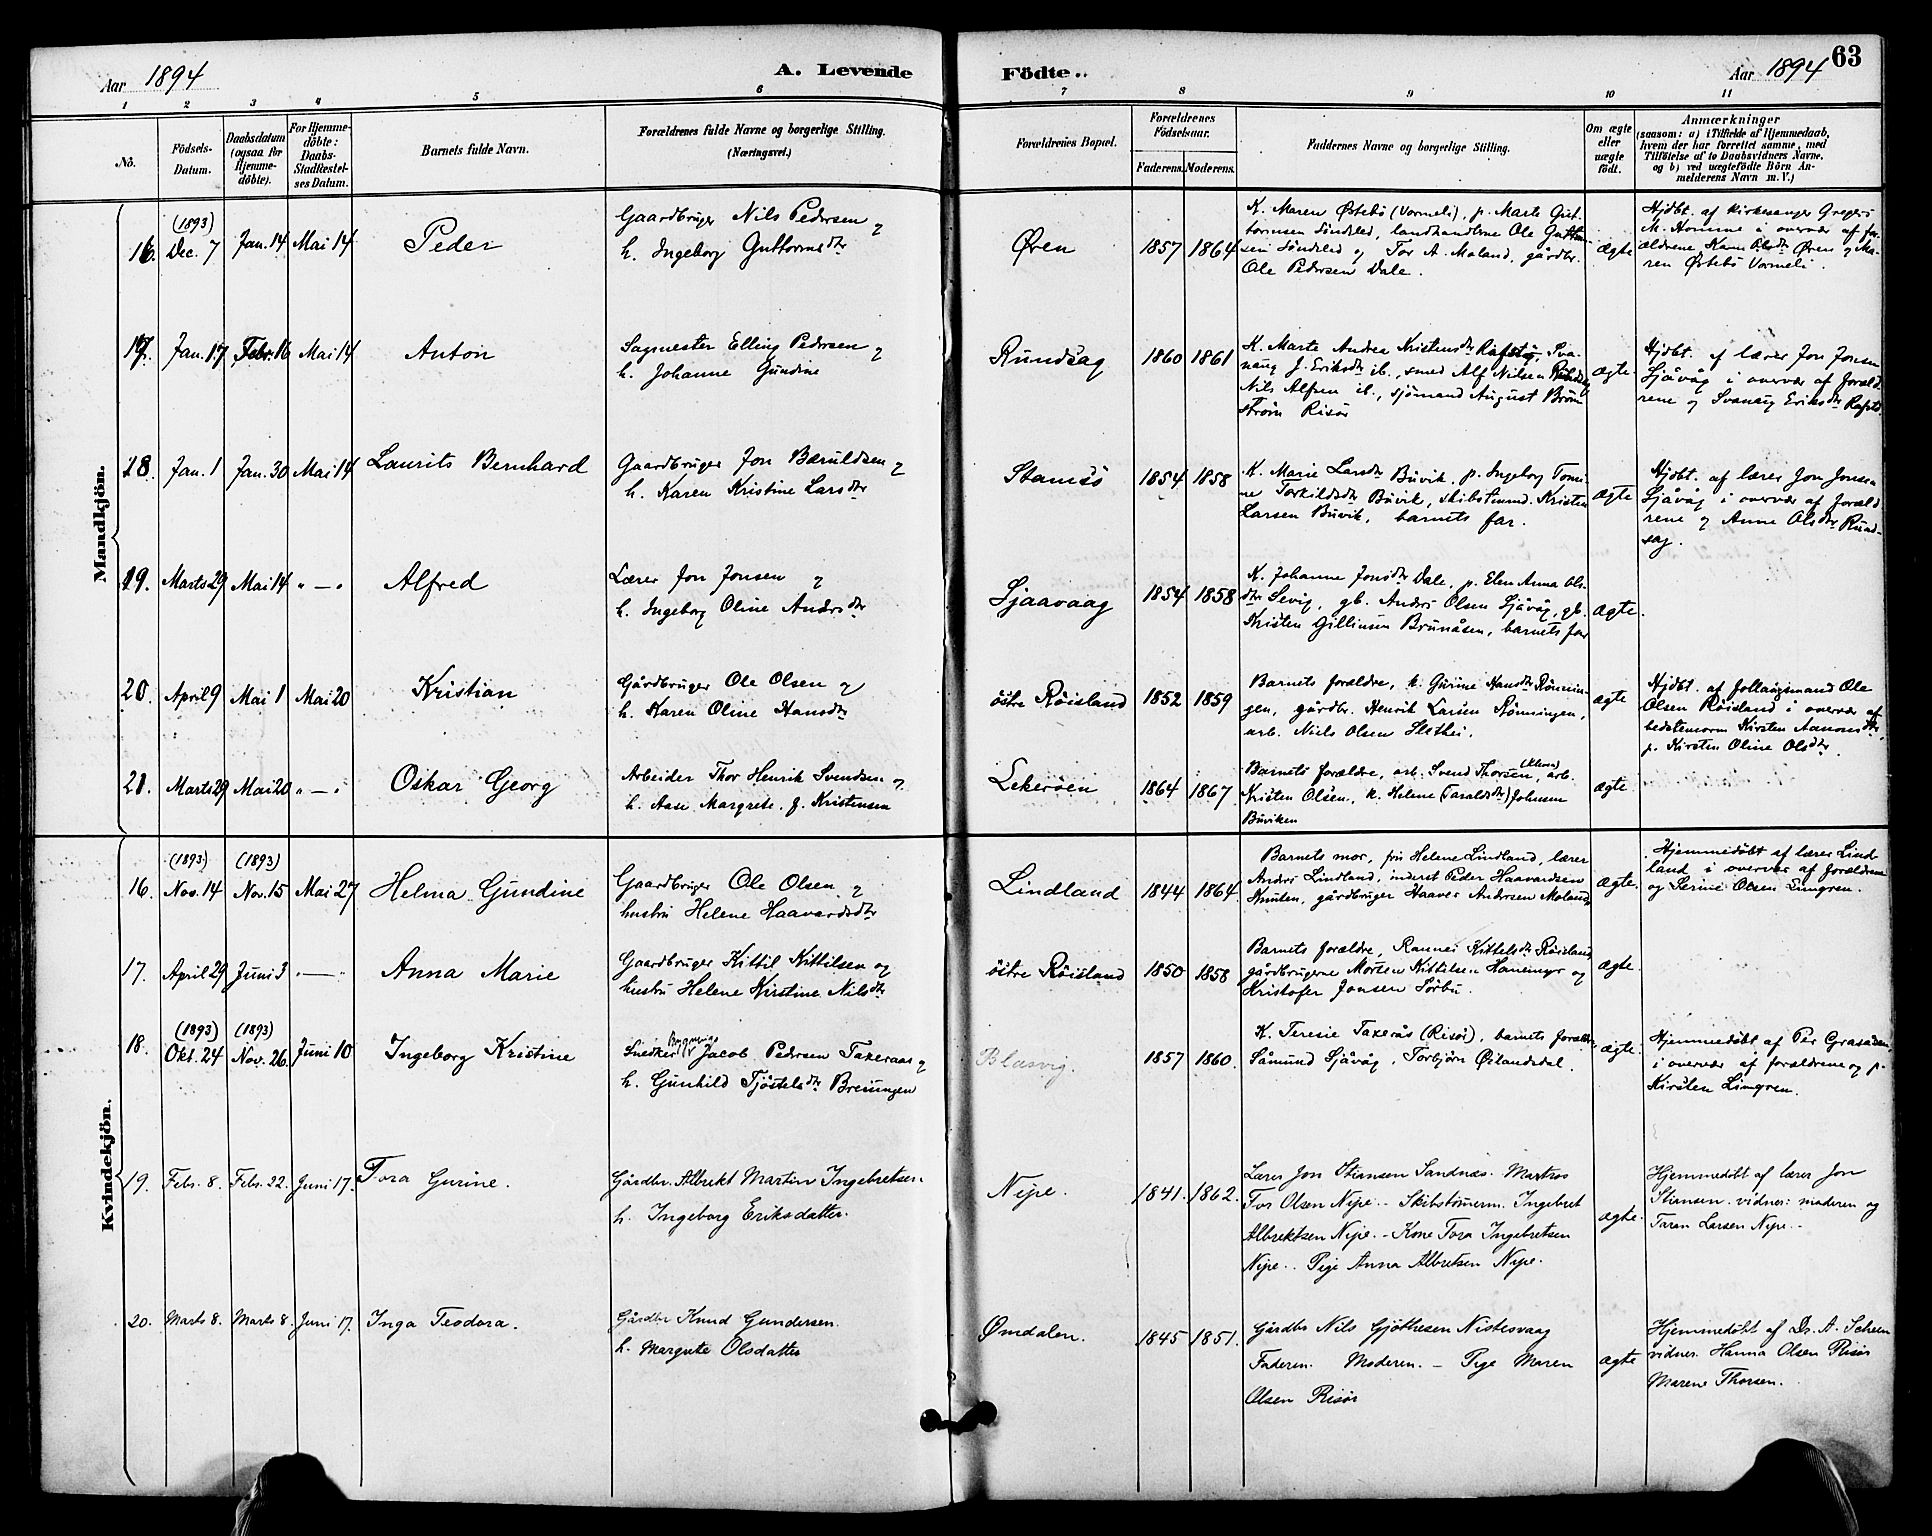 Aar 1894
A. Levende
Födte..
Aar 1894
63
1 2 3 4 5 6 7 8 9 10 11
No.
Födsels-
Datum.
Daabsdatum
(ogsaa for
Hjemme-
döbte).
For Hjemme-
döbte:
Daabs-
Stadfæstel-
ses Datum.
Barnets fulde Navn.
Forældrenes fulde Navne og borgerlige Stilling.
(Næringsvei.)
Forældrenes Bopæl.
Forældrenes
Födselsaar.
Faderens. Moderens.
Faddernes Navne og borgerlige Stilling.
Om ægte
eller
uægte
födt.
Anmærkninger
(saasom: a) i Tilfælde af Hjemmedaab,
hvem der har forrettet samme, med
Tilföielse af to Daabsvidners Navne,
og b) ved uægtefödte Börn An-
melderens Navn m. V.)
Mandkjön.
16. (1893) Dec. 7 Jan. 14 Mai 14 Peder
Gaardbruger Nils Pedersen og
h. Ingeborg Guttormsdtr
Øren 1857 1864
K. Maren Østebö (Vormeli), p. Marte Gut-
tormsen Söndeled, landhandlerne Ole Guttorm-
sen Söndeled og Tor A. Moland, gårdbr.
Ole Pedersen Dale.
ægte
Hjdbt. af kirkesanger Gregers
M. Homme i overvær af for-
ældrene Olsdtr Øren og Ma-
ren Østebö Vormeli.
17. Jan. 17 Febr. 16 Mai 14 Anton
Sagmester Elling Pedersen og
h. Johanne Gundine
Rundsag 1860 1861
K. Marte Andrea Kristensdtr Rafstö, Sva-
naug J. Eriksdtr ib., smed Alf Nilsen
Nils Alfsen ib., sjömand August Bröm
ström Risör
ægte
Hjdbt. af lærer Jon Jonsen
Sjåvåg i overvær af foræld
rene og Svanaug Eriksdtr Rafstö
18. Jan. 1 Jan. 30 Mai 14 Laurits Bernhard
Gaardbruger Jon Baruldsen og
h. Karen Kristine Larsdtr
Stamsö 1854 1858
K. Marie Larsdtr Buvik, p. Ingeborg Tomi-
ne Torkildsdtr Buvik, skibstømmd. Kristen
Larsen Buvik, barnets far.
ægte
Hjdbt. af lærer Jon Jonsen
Sjåvåg i overvær af foræld
rene og Anne Olsdtr Rund-
sag.
19. Marts 29 Mai 14 " — " Alfred
Lærer Jon Jonsen og
h. Ingeborg Oline Andersdtr
Sjaavaag 1854 1858
K. Johanne Jonsdtr Dale, p. Elen Anna Ols-
dtr Sevig, gb. Anders Olsen Sjåvåg, gb.
Kristen Gillinsen Brunåsen, barnets far
ægte.
20. April 9 Mai 1 Mai 20 Kristian
Gårdbruger Ole Olsen og
h. Karen Oline Hansdtr
östre Röisland 1852 1859
Barnets forældre, k. Gurine Hansdtr Rönnin-
gen, gårdbr. Henrik Larsen Rönningen,
arb. Niels Olsen Slethei.
ægte
Hjdbt. af Ole
Olsen Röisland i overvær af
bedstemoren Kirsten Aanonsdtr,
p. Kirsten Oline Olsdtr.
21. Marts 29 Mai 20 " — " Oskar Georg
Arbeider Thor Henrik Svendsen og
h. Aase Margrete, f. Kristensen
Lekeröen 1864 1867
Barnets forældre, arb. Svend Thorsen, arb.
Kristen Olsen, k. Helene (Taraldsdtr) Johnsen
Buviken
ægte
Kvindekjön.
16. (1893) Nov. 14 (1893) Nov. 15 Mai 27 Helma Gundine
Gaardbruger Ole Olsen og
hustru Helene Haavardsdtr
Lindland 1844 1864.
Barnets mor, fru Helene Lindland, lærer
Anders Lindland, inderst Peder Haavardsen
Knuten, gårdbruger Haaver Andersen Moland
ægte.
Hjemmedöbt af lærer Lind-
land i overvær af forældrene
og Serine Olsen Limgren.
17. April 29 Juni 3 " — " Anna Marie
Gaardbruger Kittil Kittilsen og
hustru Helene Kirstine Nilsdtr
östre Röisland 1850 1858
Barnets forældre, Rannei Kittelsdtr Röisland
gårdbrugerne Morten Kittilsen Hanemyr og
Kristofer Jonsen Sörbu.
ægte.
18. (1893) Okt. 24 (1893) Nov. 26. Juni 10 Ingeborg Kristine
Snedker Jacob Pedersen Taxeraas og
h. Gunhild Tjöstelsdtr Breiungen
Blaсsvig. 1857 1860.
K. Teresie Taxerås (Risör), barnets forældre
Såmund Sjåvåg, Torbjörn Östandsdal.
ægte.
Hjemmedöbt af Per Graasåsen
i overvær af forældrene og p.
Kirsten Limgren.
19. Febr. 8. Febr. 22. Juni 17. Tora Gurine.
Gårdbr. Albrekt Martin Ingebretsen.
h. Ingeborg Eriksdatter.
Nipe. 1841. 1862.
Lærer Jon Stiansen Sandnæs. Matros
Tor Olsen Nipe.. Skibstömerm. Ingebret
Albrektsen Nipe. – Kone Tora Ingebretsen
Nipe.. Pige Anna Albretsen Nipe.
ægte.
Hjemmedöbt af lærer Jon
Stiansen. vidner: moderen og
Taran Larsen Nipe. –
20. Marts 8. Marts 8. Juni 17. Inga Teodora.
Gårdbr Knud Gundersen.
h. Margrete Olsdatter
Ømdalen. 1845 1851.
Gårdbr Nils Gjöthesen Nistesvaag
Faderen. Moderen. – Pige Maren
Olsen Risör
ægte
Hjemmedöbt af Dr. A. Scheen
vidner. Hanna Olsen Risör
Marene Thorsen.